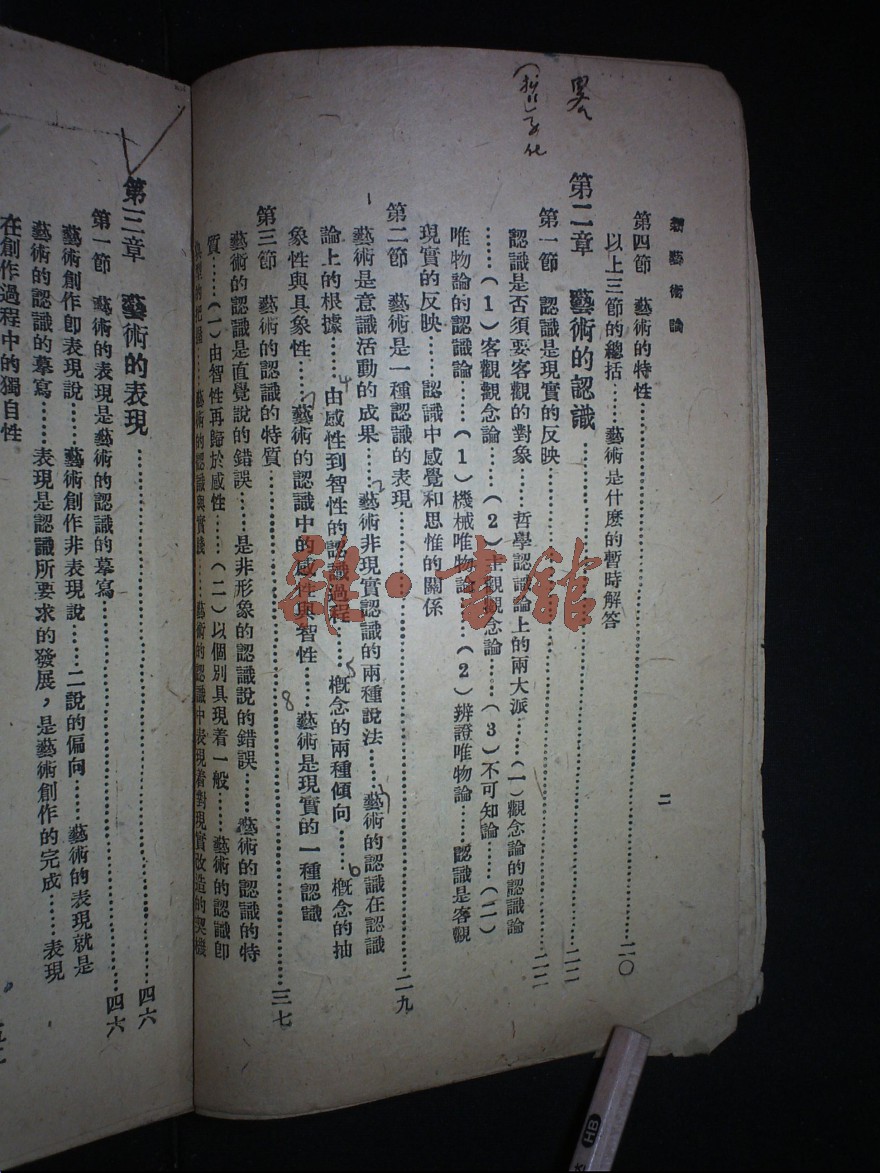 新藝術論
二
第四節　藝術的特性……………二〇
以上三節的總括……藝術是什麼的暫時解答
第二章　藝術的認識……………二二
第一節　認識是現實的反映……………二二
認識是否須要客觀的對象……哲學認識論上的兩大派……(一)觀念論的認識論
……(1)客觀觀念論……(2)主觀觀念論……(3)不可知論……(二)
唯物論的認識論……(1)機械唯物論……(2)辨證唯物論……認識是客觀
現實的反映……認識中感覺和思惟的關係
第二節　藝術是一種認識的表現……………二九
藝術是意識活動的成果……藝術非現實認識的兩種說法……藝術的認識在認識
論上的根據……由感性到智性的認識過程……概念的兩種傾向……概念的抽
象性與具象性……藝術的認識中的感性與智性……藝術是現實的一種認識
1
2
4
5
6
7
8
第三節　藝術的認識的特質……………三七
藝術的認識是直覺說的錯誤……是非形象的認識說的錯誤……藝術的認識的特
質……(一)由智性再歸於感性……(二)以個別具現着一般……藝術的認識卽
典型的把握……藝術的認識與實踐……藝術的認識中表現着對現實改造的契機
第三章　藝術的表現……………四六
第一節　藝術的表現是藝術的認識的摹寫……………四六
藝術創作卽表現說……藝術創作非表現說……二說的偏向……藝術的表現就是
藝術的認識的摹寫……表現是認識所要求的發展，是藝術創作的完成……表現
在創作過程中的獨自性
雜·書館
HB